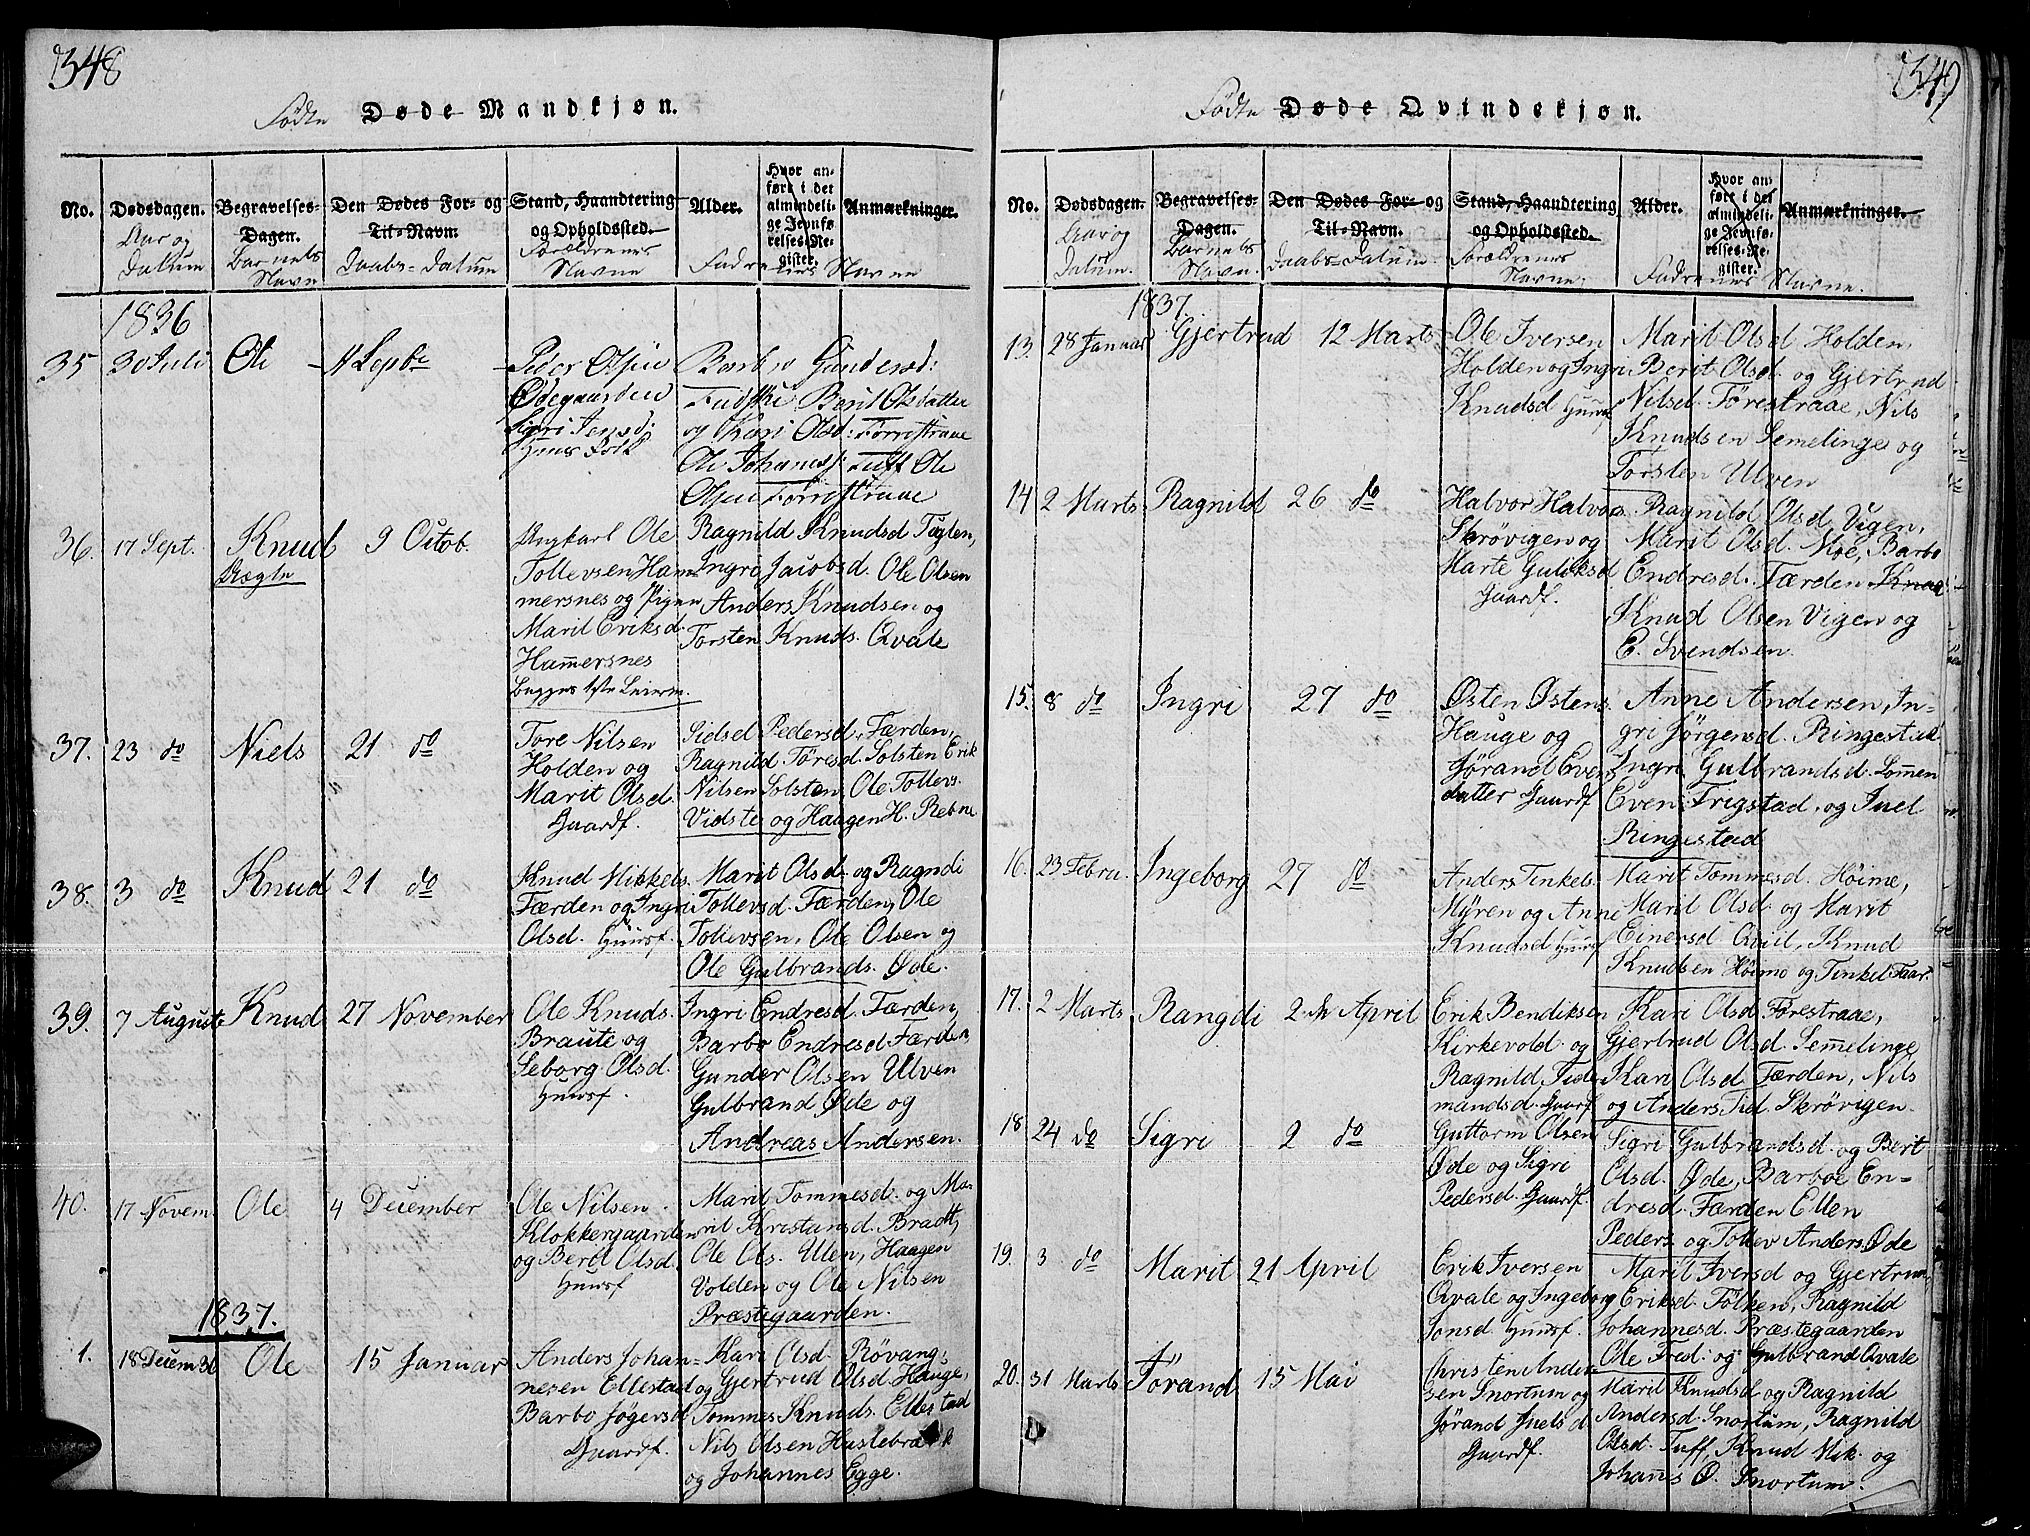 348
Fødte Døde Mandkjøn.
No. Dødsdagen. Begravelses-Dagen. Den Dødes For- og Til-Navn. Stand, Haandtering og Opholdssted. Alder. Hvor anføre i det almindelige Jevnførelses-Register. Anmærkninger.
Aar og Datum Barnets Navn Daabs-Datum Forældrenes Navne Faddrenes Navne
1836
35 30 Juli Ole 4 Septbr
Peder Olsen
Ødegaarden
Sigri Jensd:
Huus Folk
Barbro Gundersd:
Berit Olsdatter
og Kari Olsd: Førrestraae
Ole Johannes: Tuff Ole
Olsen Førrestraae
36. 17 Sept. Knud 9 Octob.
Uægte
Ungkarl Ole
Tollevsen Ham-
mersnes og Pigen
Marit Eriksd.
Hammersnes
begges 1ste Leierm.
Ragnild Knudsd Tuglen,
Ingri Jacobsd. Ole Olsen
Anders Knudsen og
Torsten Knuds. Qvale
37. 23 do Niels 21 do
Tore Nilsen
Holden og
Marit Olsd.
Gaardf.
Sidsel Pedersd. Færden,
Ragnild Toresd. Solsten Erik
Nilsen Solsten, Ole Tollevs.
Vidste og Haagen H. Rebne
38. 3 do Knud 21 do
Knud Mikkels.
Færden og Ingri
Olsd. Huusf.
Marit Olsd. og Ragndi
Tollevsd. Færden, Ole
Tollevsen, Ole Olsen og
Ole Gulbrands. Øde.
39. 7 Auguste Knud 27 November
Ole Knuds.
Braute og
Seborg Olsd.
Huusf.
Ingri Endresd. Færden,
Barbo Endresd Færden,
Gunder Olsen Ulven
Gulbrand Øde og
Andreas Andersen.
40. 17 Novem. Ole 4 December
Ole Nilsen
Klokkergaarden
og Berit Olsd.
Huusf
Marit Tommesd. og Ma-
rit Kristansd. Bradt,
Ole Ols. Ulen, Haagen
Volden og Ole Nilsen
Præstegaarden.
1837.
1. 18 Decem 36 Ole 15 Januar
Anders Johan-
nesen Ellestad
Barbo Jøgersd
Gaardf.
Kari Olsd. Røvang,
og Gjertrud Olsd. Hauge,
Tommes Knuds. Ellestad
Nils Olsen Huslebræk
og Johannes Egge.
349
Fødte Døde Qvindekjøn.
No. Dødsdagen. Begravelses-Dagen. Den Dødes For- og Til-Navn. Stand, Haandtering og Opholdssted. Alder. Hvor anføre i det almindelige Jevnførelses-Register. Anmærkninger.
Aar og Datum. Barnets Navn. Daabs-Datum. Forældrenes Navne. Faddrenes Navne.
1837.
13. 28 Januar Gjertrud 12 Marts
Ole Iversen
Holden og Ingri
Knudsd Huusf
Marit Olsd Holden,
Berit Olsd. og Gjertrud
Nilsd. Førestraae, Nils
Knudsen Semelinge og
Torsten Ulven
14 2 Marts Ragnild 26 do
Halvor Halvors.
Skrøvigen og
Marte Guliksd
Gaardf.
Ragnild Olsd. Vigen,
Marit Olsd. Moe, Barbo
Endresd. Færden Knud
Knud Olsen Vigen og
E. Svendsen.
15. 8 do Ingri 27 do
Østen Østens.
Hauge og
Jørand Evens
datter Gaardf
Anne Andersen, In-
gri Jørgensd. Ringestad
Ingri Gulbrandsd. Lommen
Even Frigstad og Juel
Ringestad
16. 23 Febru. Ingeborg 27 do
Anders Tinkels.
Myren og Anne
Knudsd Huusf
Marit Tommesd. Høime,
Marit Olsd. og Marit
Einersd Qvil, Knud
Knudsen Høime og Tinkel Faar.
17. 2 Marts Rangdi 2 April
Erik Bendiksen
Kirkevold og
Ragnild Tide-
mandsd. Gaardf
Kari Olsd. Førestraae,
Gjertrud Olsd. Semelinge
Kari Olsd Færden, Nils
og Anders Tid. Skrøvigen.
18 24 do Sigri 2 do
Guttorm Olsen
Øde og Sigri
Pedersd. Gaardf.
Sigri Gulbrandsd. og Berit
Olsd. Øde, Barboe En-
dresd. Færden Ellen
Peders. og Tollev Anders. Øde
19. 3 do Marit 21 April
Erik Iversen
Qvale og Ingeborg
Jonsd. Huusf.
Marit Iversd og Gjertrud
Eriksd. Folken, Ragnild
Johannesd. Præstegaarden
Ole Fred. og Gulbrand Qvale
20. 31 Marts Jørand 15 Mai
Christen Ander-
sen Snortum og
Jørand Juelsd
Gaardf.
Marit Knudsd og Ragnild
Andersd. Snortum, Ragnild
Olsd. Tuff, Knud Mik. og
Johans O. Snortum.